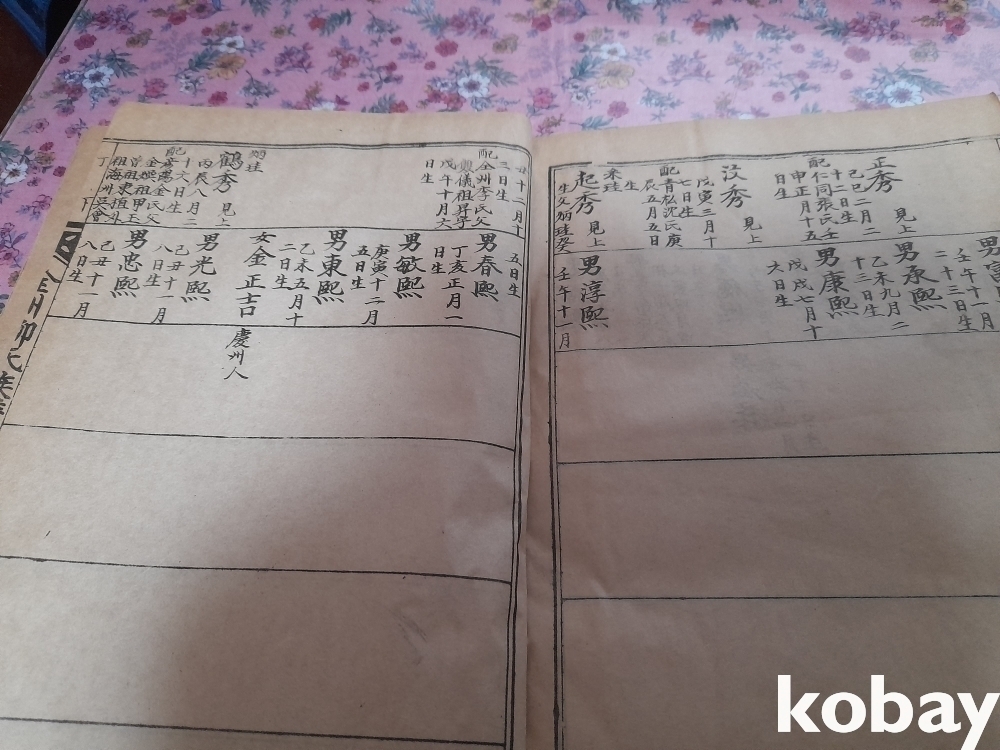 正秀 見上
己巳二月二
十二日生
配仁同張氏壬
申正月十五
日生
汶秀 見上
戊寅三月十
七日生
配青松沈氏庚
辰五月五日
生
起秀 見上
壬午十一月
二十三日生
男承熙
乙未九月二
十三日生
男康熙
戊戌七月十
六日生
男淳熙
壬午十一月
十二月十
三日生
配全州李氏父
儀祖昇宇
戊午十月六
日生
炳珪
鶴秀 見上
丙辰八月二
十六日生
祖海州吳
五日生
男春熙
丁亥正月一
日生
男敏熙
庚寅十二月
五日生
男東熙
乙未五月十
二日生
女金正吉 慶州人
男光熙
己丑十一月
八日生
男忠熙
己丑十一月
八日生
kobay